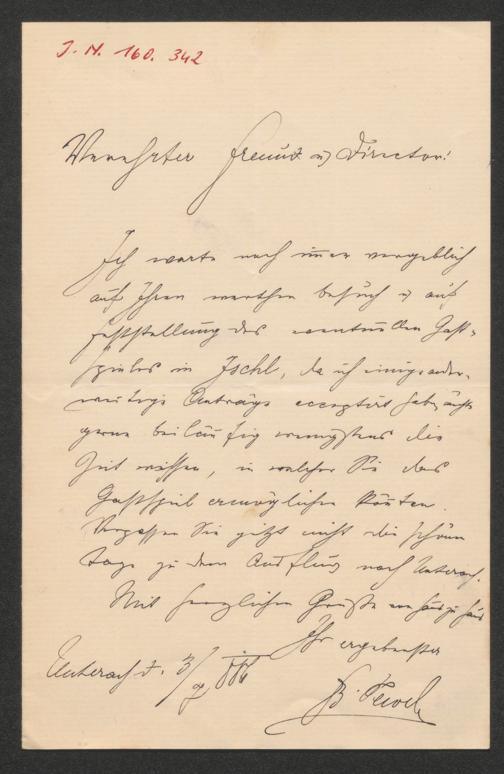 J. N. 160. 342
Verehrter Freund u Director!
Ich warte noch immer vergeblich
auf Ihren werthen Besuch u auf
Feststellung des eventuellen Gast-
spieles in Ischl, da ich einige ander-
weitige Anträge acceptirt habe, möchte
gerne beiläufig wenigstens die
Zeit wissen, in welcher Sie das
Gastspiel ermöglichen könten.
Vergessen Sie jetzt nicht die schönen
Tage zu dem Ausflug nach Unterach.
Mit herzlichen Grüße von Haus zu Haus
Ihr ergebenster
Unterach d. 3/